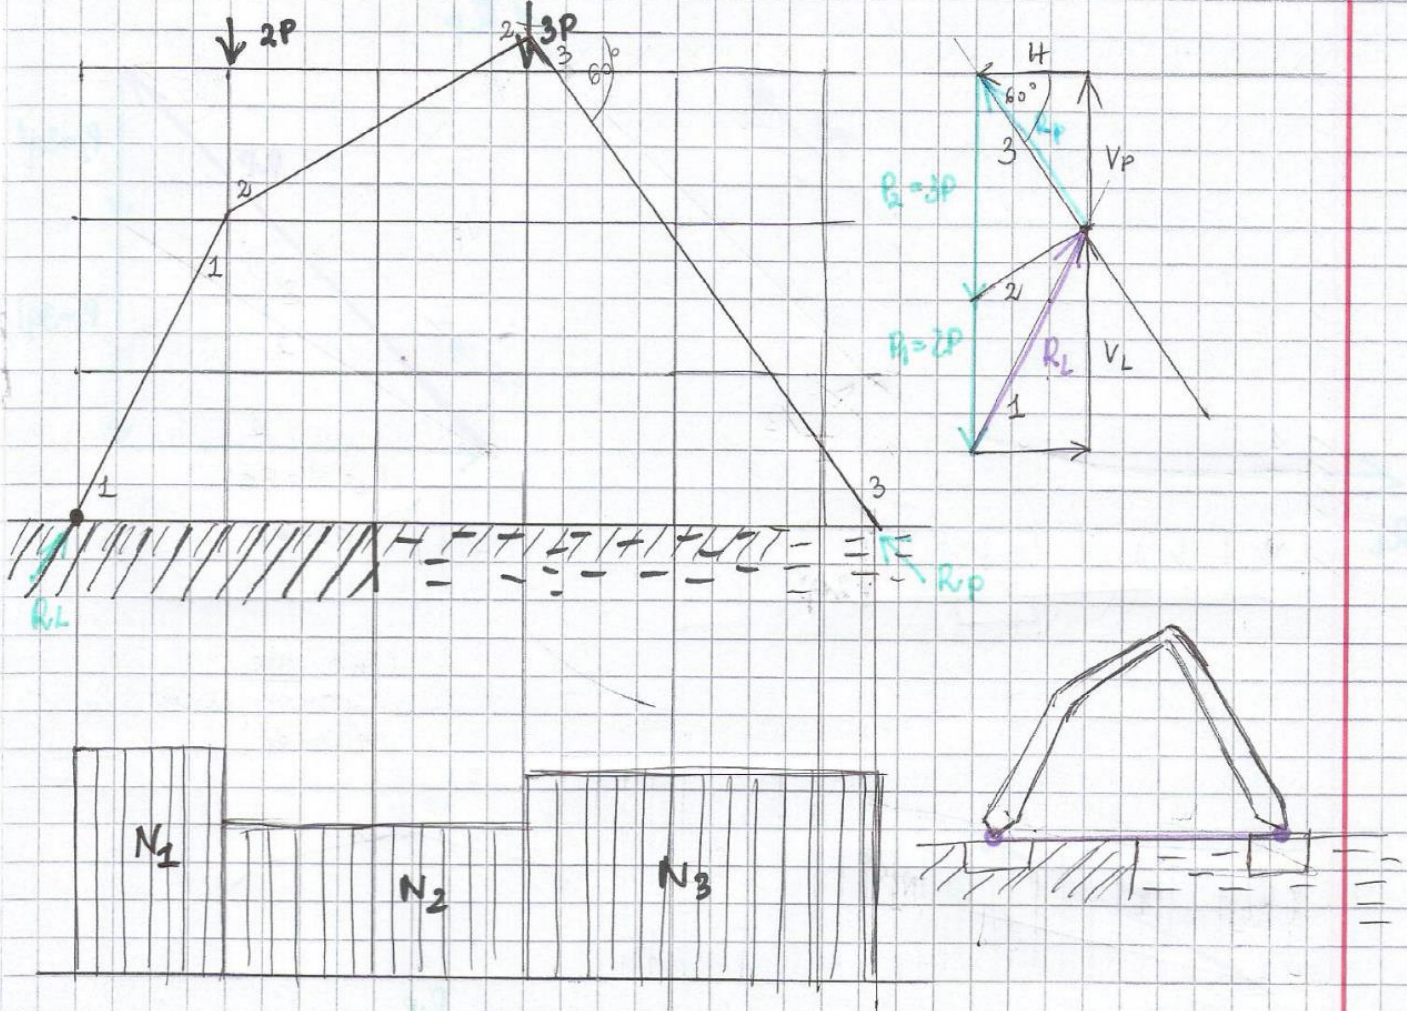 2P
2 3P
3
60°
2
1
1
3
RL
RP
H
60°
RP
3
VP
P2=3P
2
P1=2P
RL
VL
1
N1
N2
N3